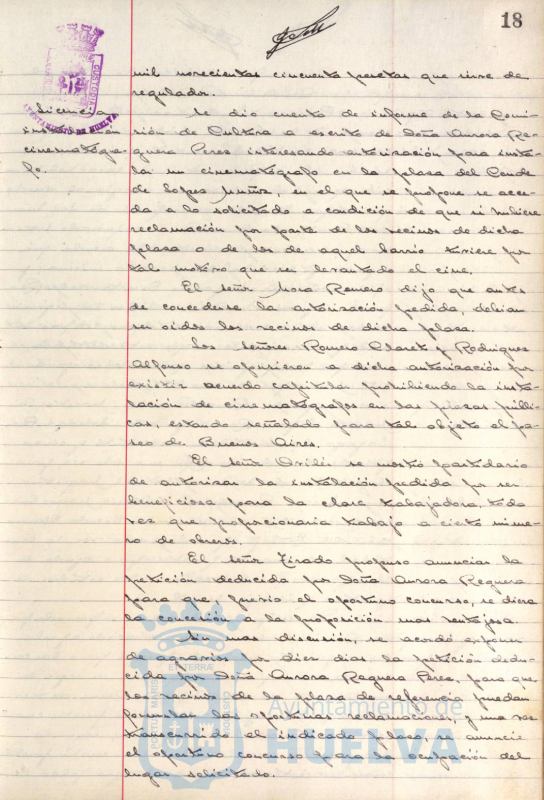 18
mil novecientas cincuenta pesetas que sirve de
regulador.
Licencia
instalación
cinematógra-
fo.
Se dio cuenta de informe de la Comi-
sión de Cultura a escrito de Doña Aurora Re-
guera Perez interesando autorización para insta-
lar un cinematógrafo en la plaza del Conde
de Lopez Muñoz, en el que se propone se acce-
da a lo solicitado a condición de que si hubiere
reclamación por parte de los vecinos de dicha
plaza o de los de aquel barrio tuviere por
tal motivo que ser levantado el cine.
El señor Mora Romero dijo que antes
de concederse la autorización pedida, debian
ser oidos los vecinos de dicha plaza.
Los señores Romero Claret y Rodriguez
Alfonso se opusieron a dicha autorización por
existir acuerdo capitular prohibiendo la insta-
lación de cinematógrafos en las plazas públi-
cas, estando señalado para tal objeto el pa-
seo de Buenos Aires.
El señor se mostró partidario
de autorizar la instalación pedida por ser
beneficiosa para la clase trabajadora, toda
vez que proporcionaria trabajo a cierto nume-
ro de obreros.
El señor Tirado propuso anunciar la
petición deducida por Doña Aurora Reguera
para que, previo el oportuno concurso, se diera
la concesión a la proposición mas ventajosa.
Sin mas discusión, se acordó exponer
de agravios por diez dias la petición dedu-
cida por Doña Aurora Reguera Perez, para que
los vecinos de la plaza de referencia puedan
formular las oportunas reclamaciones, y una vez
transcurrido el indicado plazo, se anuncie
el oportuno concurso para la ocupación del
lugar solicitado.
CUSTODIA
AYUNTAMIENTO DE HUELVA
PORTUS MARIS ET TERRAE CUSTODIA
Ayuntamiento de
HUELVA